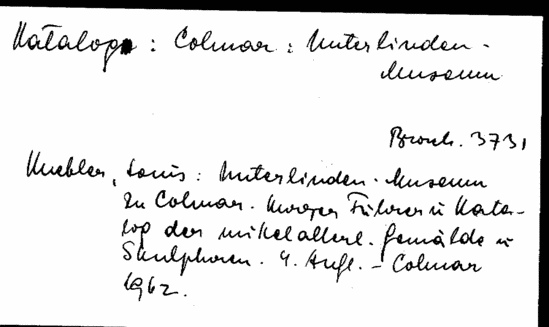 Kataloge : Colmar : Unterlinden-
Museum
Brosch. 3731
Kuebler, Louis : Unterlinden-Museum
zu Colmar. Kurzer Führer u Kata-
log der mittelalterl. Gemälde u
Skulpturen. 4. Aufl. - Colmar
1962.